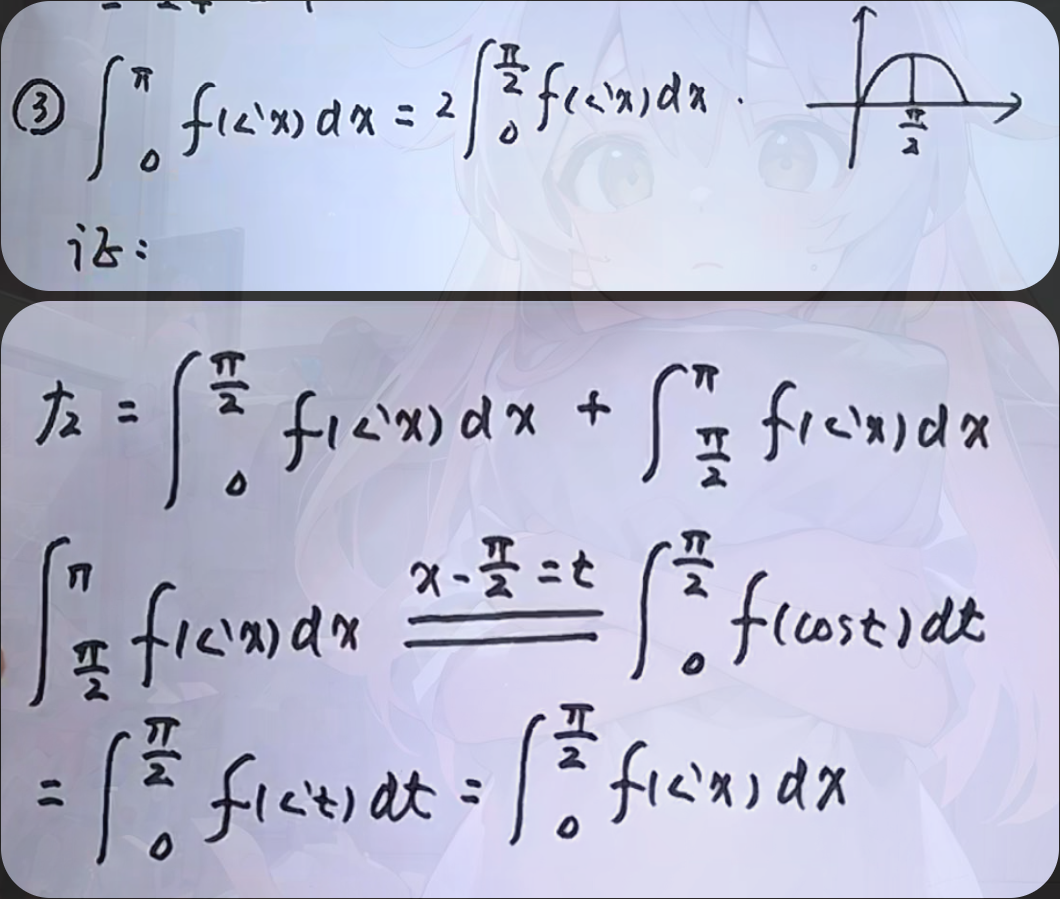 ③ ∫₀^π f(sin x) dx = 2 ∫₀^{π/2} f(sin x) dx .
π/2
证:
左 = ∫₀^{π/2} f(sin x) dx + ∫_{π/2}^π f(sin x) dx
∫_{π/2}^π f(sin x) dx \xlongequal{x - π/2 = t} ∫₀^{π/2} f(cos t) dt
= ∫₀^{π/2} f(sin t) dt = ∫₀^{π/2} f(sin x) dx